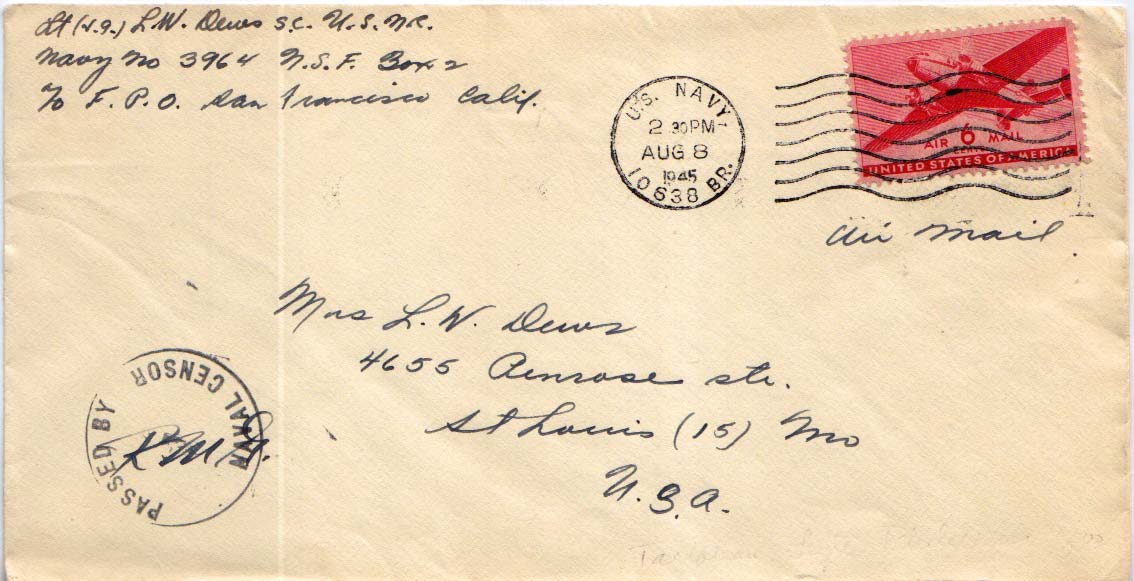 Lt (J.G.) L.W. Dews S.C. U.S.N.R.
Navy No 3964 N.S.F. Box 2
℅ F.P.O. San Francisco Calif.
U.S. NAVY
2 30PM
AUG 8
1945
10638 BR.
AIR 6 MAIL
CENTS
UNITED STATES OF AMERICA
Air Mail
Mrs L.W. Dews
4655 Penrose str.
St Louis (15) Mo
U.S.A.
PASSED BY NAVAL CENSOR